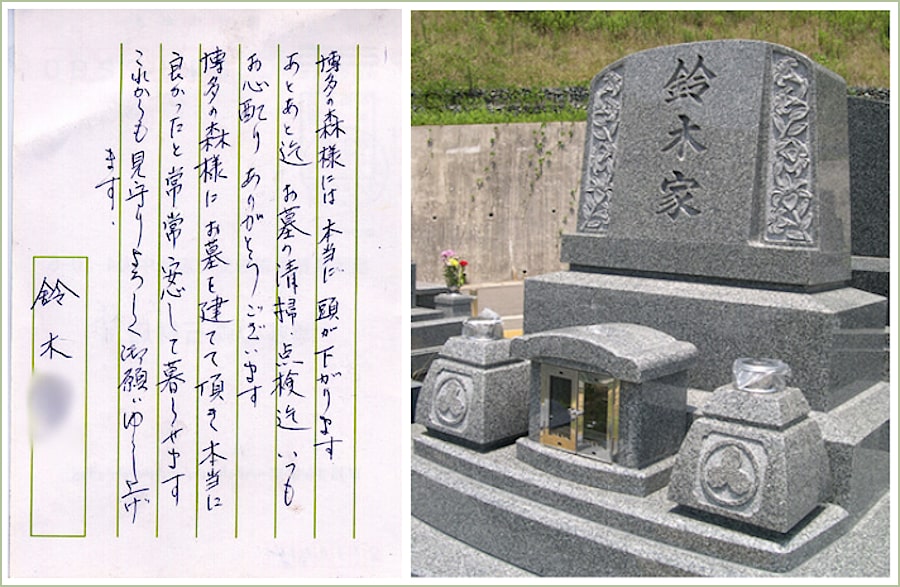 博多の森様には 本当に 頭が下がります
あとあと迄 お墓の清掃、点検迄 いつも
お心配り ありがとうございます
博多の森様に お墓を建てて頂き 本当に
良かったと常常安心して暮らせます
これからも見守りよろしく御願いゆし上げ
ます.
鈴木
鈴木家